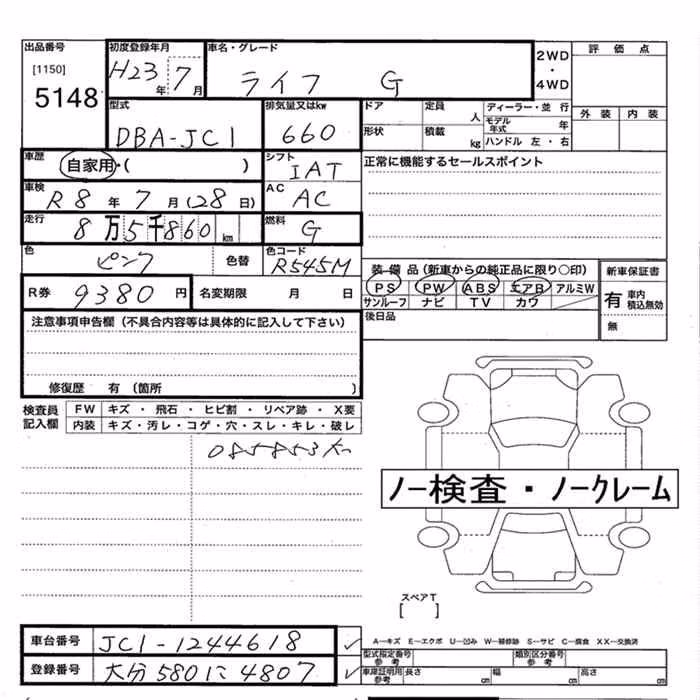 出品番号 初度登録年月 車名・グレード 2WD・4WD 評価点
[1150]
5148 H23年 7月 ライフ G
型式 排気量又はkw ドア 定員 人 ディーラー・並行 外装 内装
DBA-JC1 660 形状 積載 kg モデル年式 年 ハンドル 左・右
車歴 自家用・( ) シフト IAT 正常に機能するセールスポイント
車検 R8年 7月(28日) AC AC
走行 8万5千860km 燃料 G
色 ピンク 色替 色コード R545M
装備品(新車からの純正品に限り○印) 新車保証書
PS PW ABS エアB アルミW 有 車内積込無効
R券 9380円 名変期限 月 日 サンルーフ ナビ TV カワ
注意事項申告欄(不具合内容等は具体的に記入して下さい) 後日品 無
修復歴 有(箇所 )
検査員記入欄 FW キズ・飛石・ヒビ割・リペア跡・X要
内装 キズ・汚レ・コゲ・穴・スレ・キレ・破レ
085853
ノー検査・ノークレーム
スペアT
[ ]
車台番号 JC1-1244618 A-キズ E-エクボ U-凹み W-補修跡 S-サビ C-腐食 XX-交換済
型式指定番号 参考 類別区分番号 参考
登録番号 大分580に4807 車庫証明用 参考 長さ cm 幅 cm 高さ cm